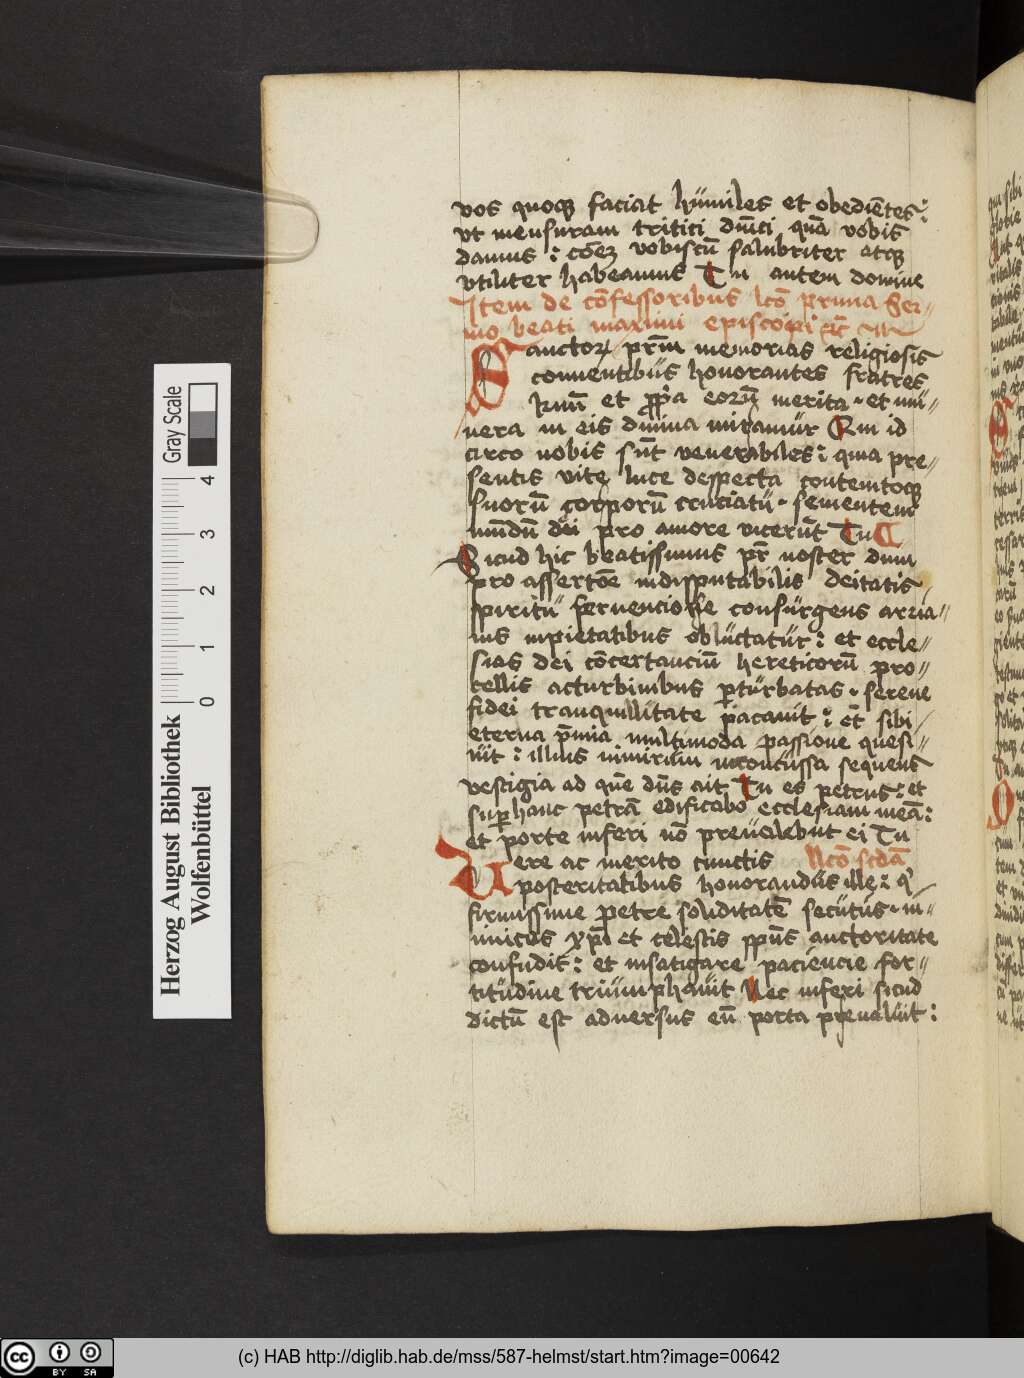 vos quoqꝫ faciat humiles et obediētes :
vt mensuram tritici dn̄ici quā vobis
damus : cōem vobiscū salubriter atqꝫ
vtiliter habeamus Tu autem domine
Item de cōfessoribus lcō prima Ser-
mo beati maximi episcopi
Sanctoꝝ pr̄m memorias religiosis
conuentibus honorantes fratres
kr̄mi et ppͥa eorū merita · et mu-
nera in eis diuina miramur Qui id
circo nobis sūt venerabiles : quia pre-
sentis vite luce despecta contemtoqꝫ
suorū corporū cruciatu · sementem
mūdū dei pro amore vicerūt Tu
Sicud hic beatissimus pr̄ noster dum
pro assertōe indisputabilis deitatis
spiritu feruenciore consurgens arria-
nis inpietatibus obluctatur : et eccle-
sias dei cōcertanciū hereticorū pro-
cellis acturbinibus ꝑturbatas · serene
fidei tranquillitate pacauit : et sibi
eterna p̄mia multimoda passione quesi-
uit : illius nimirum inconcussa sequens
vestigia ad quē dn̄s ait Tu es petrus : et
suꝑ hanc petrā edificabo ecclesiam meā :
et porte inferi nō preualebūt ei Tu
Uere ac merito cunctis lcō scd̄a
posteritatibus honorandus ille : qͥ
firmissime petre soliditatē secutus · in-
imicos xp̄i et celestis sp̄us auctoritate
confudit : et infatigare paciencie for-
titudine triumphauit Nec inferi sicud
dictū est aduersus eū porta preualuit :
Herzog August Bibliothek
Wolfenbüttel
Gray Scale
0 1 2 3 4
cc BY SA
(c) HAB http://diglib.hab.de/mss/587-helmst/start.htm?image=00642